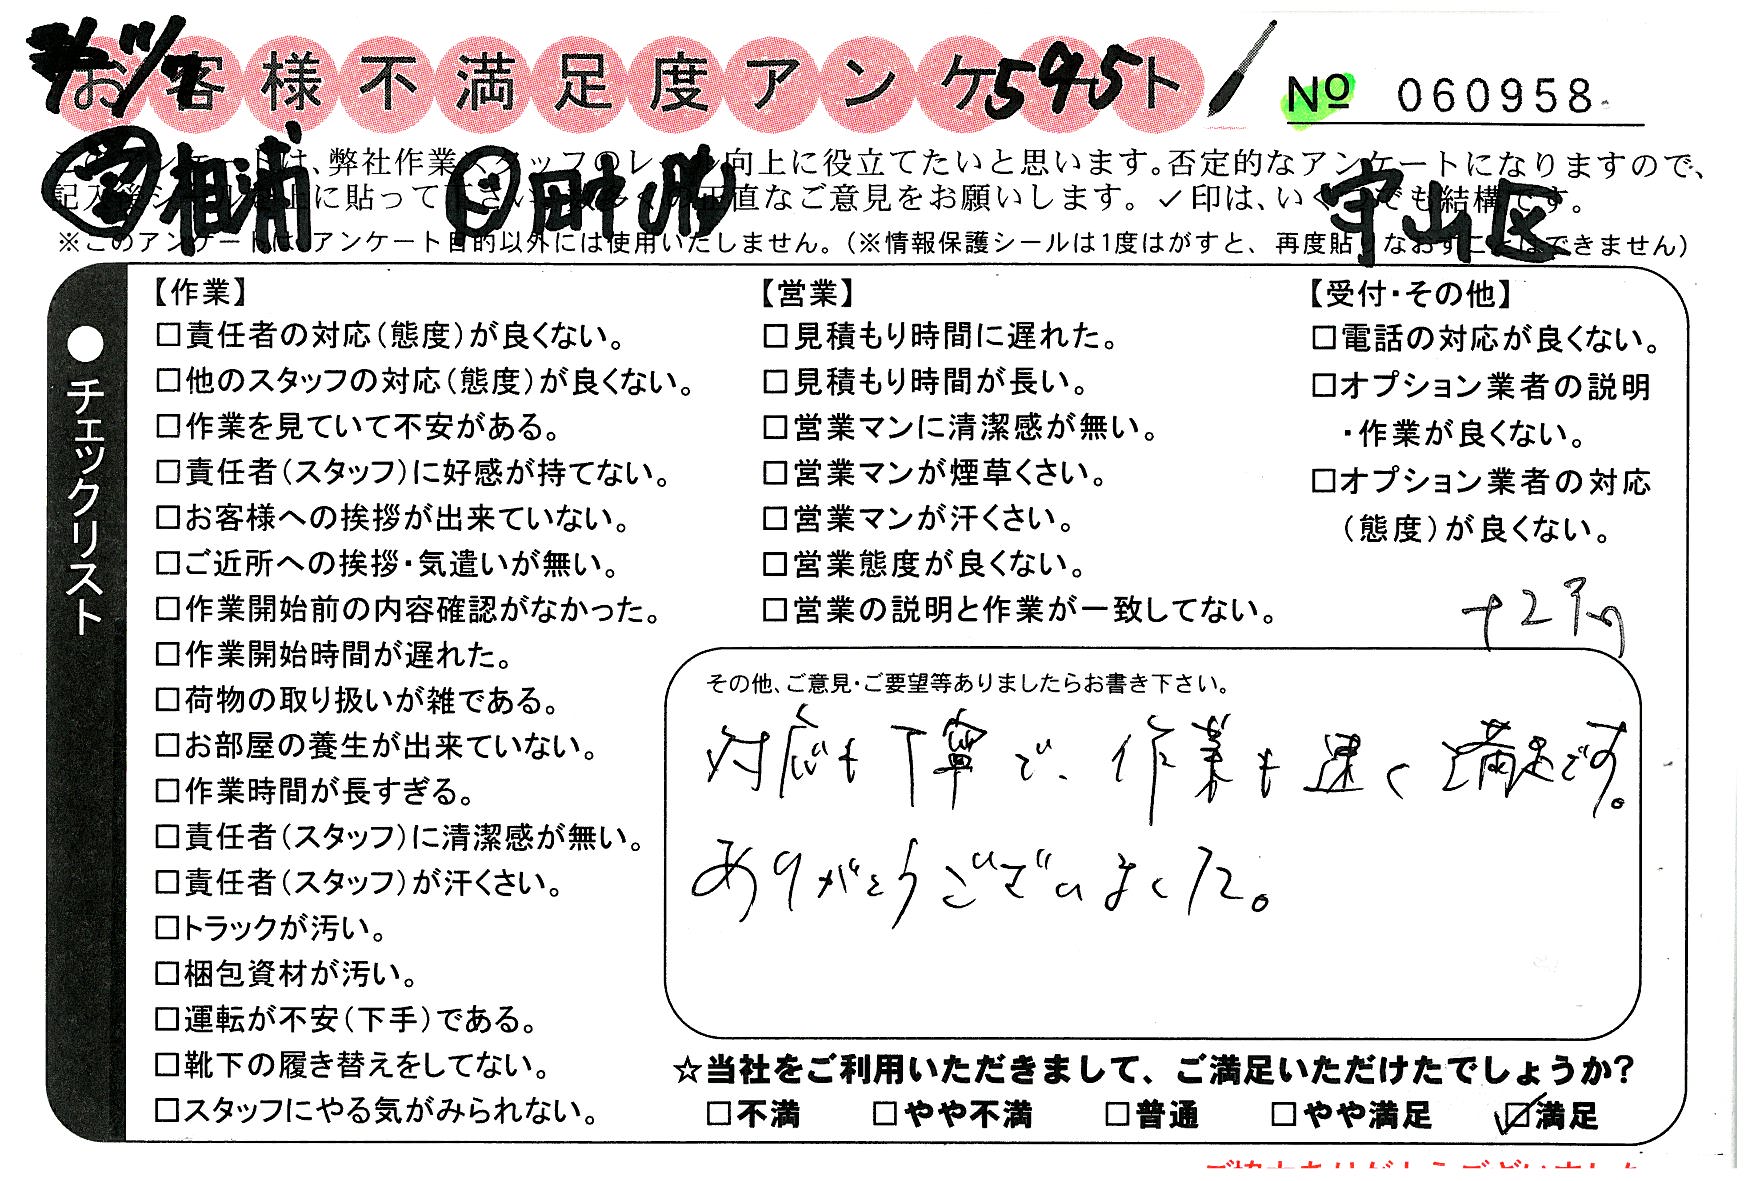 お客様不満足度アンケート
№ 060958
595
このアンケートは、弊社作業スタッフのレベル向上に役立てたいと思います。否定的なアンケートになりますので、
記入後シールを上に貼って下さい。多くの正直なご意見をお願いします。✓印は、いくつでも結構です。
相浦 田中 守山区
※このアンケートは、アンケート目的以外には使用いたしません。（※情報保護シールは1度はがすと、再度貼りなおすことはできません）
●チェックリスト
【作業】
□責任者の対応（態度）が良くない。
□他のスタッフの対応（態度）が良くない。
□作業を見ていて不安がある。
□責任者（スタッフ）に好感が持てない。
□お客様への挨拶が出来ていない。
□ご近所への挨拶・気遣いが無い。
□作業開始前の内容確認がなかった。
□作業開始時間が遅れた。
□荷物の取り扱いが雑である。
□お部屋の養生が出来ていない。
□作業時間が長すぎる。
□責任者（スタッフ）に清潔感が無い。
□責任者（スタッフ）が汗くさい。
□トラックが汚い。
□梱包資材が汚い。
□運転が不安（下手）である。
□靴下の履き替えをしてない。
□スタッフにやる気がみられない。
【営業】
□見積もり時間に遅れた。
□見積もり時間が長い。
□営業マンに清潔感が無い。
□営業マンが煙草くさい。
□営業マンが汗くさい。
□営業態度が良くない。
□営業の説明と作業が一致してない。
【受付・その他】
□電話の対応が良くない。
□オプション業者の説明
・作業が良くない。
□オプション業者の対応
（態度）が良くない。
その他、ご意見・ご要望等ありましたらお書き下さい。
対応も丁寧で、作業も速く満足です。
ありがとうございました。
☆当社をご利用いただきまして、ご満足いただけたでしょうか？
□不満 □やや不満 □普通 □やや満足 ☑満足
ご協力ありがとうございました